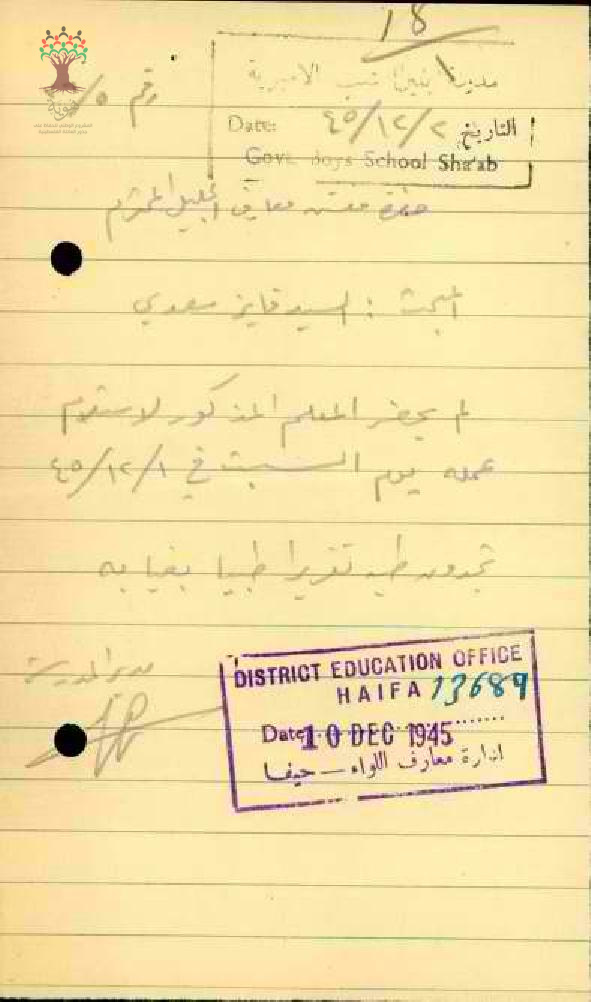 18
مدرسة بنين شعب الاميرية
رقم ٥/
Date: ٤٥/١٢/٢ التاريخ
Govt. Boys School Sha'ab
حضرة مفتش معارف الجليل المحترم
المبحث : السيد فايز سعدي
لم يحضر المعلم المذكور لاستلام
عمله يوم السبت في ٤٥/١٢/١
تجدون طيه تقريرا طبيا بغيابه
مدير المدرسة
DISTRICT EDUCATION OFFICE
HAIFA 13689
Date 10 DEC 1945
ادارة معارف اللواء — حيفا